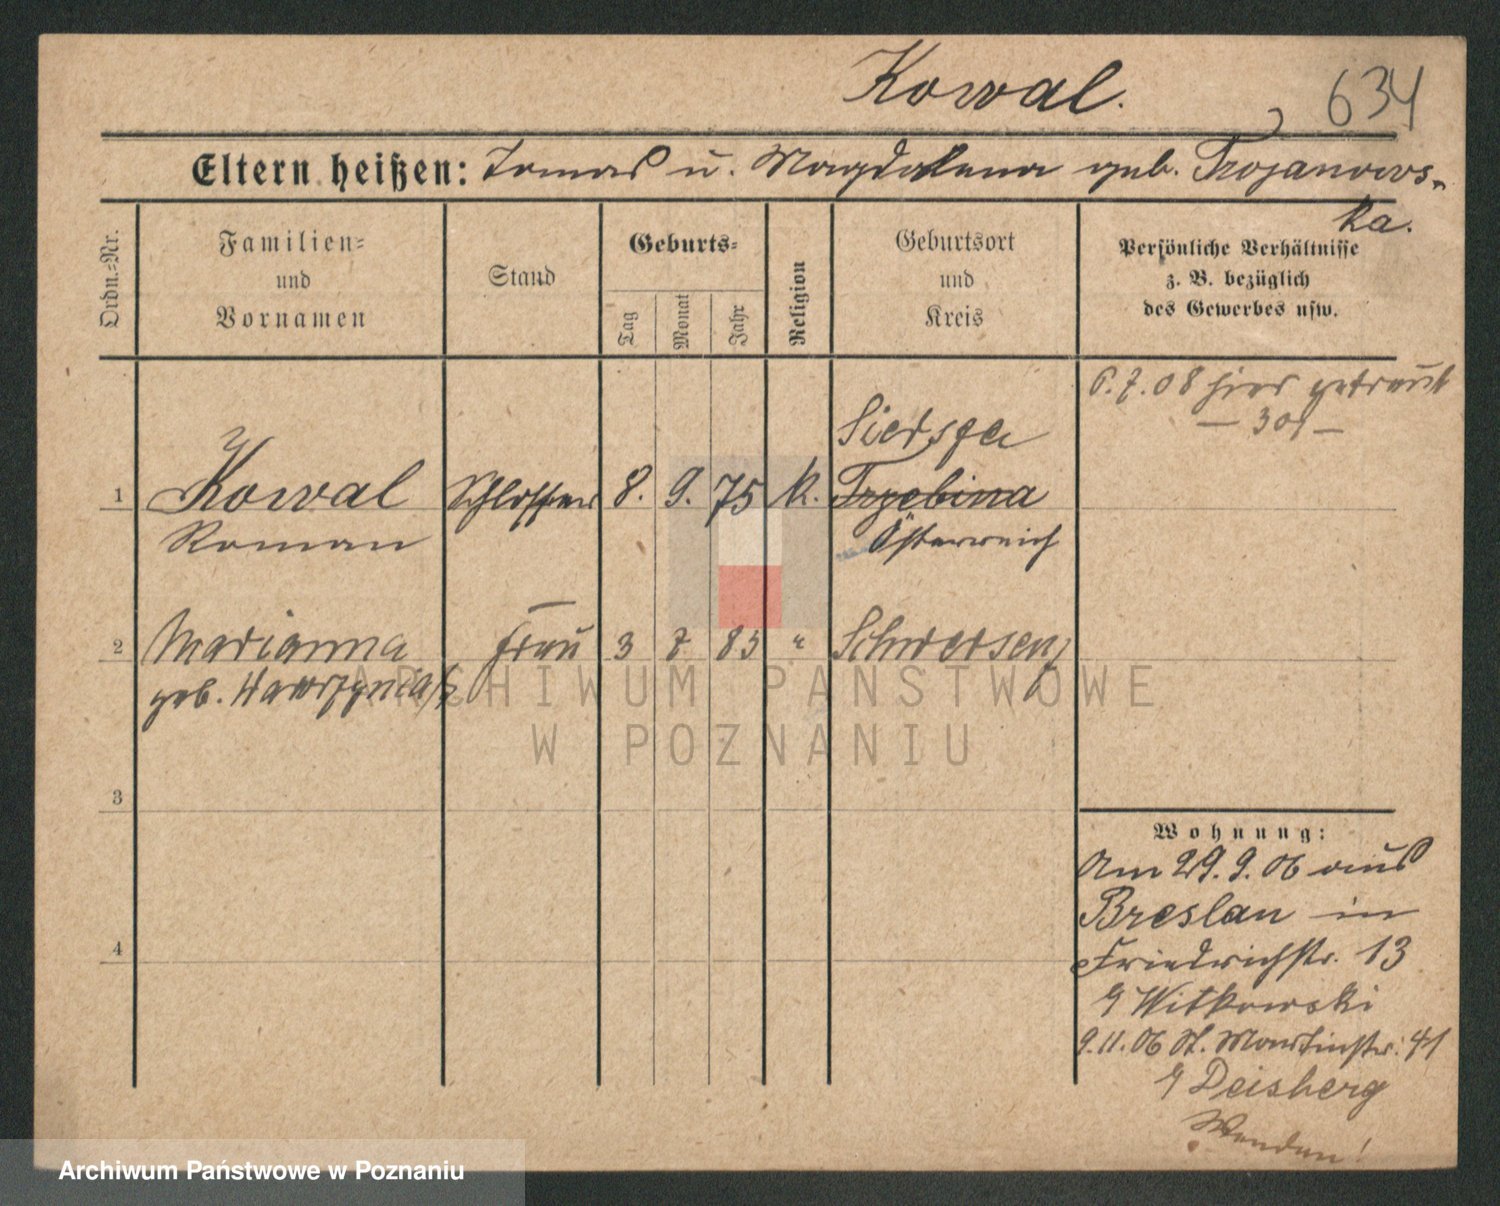 Kowal.
634
Eltern heißen: Tomas u. Magdalena geb. Trojanows-
ka.
Ordn.-Nr.
Familien-
und
Vornamen
Stand
Geburts-
Tag
Monat
Jahr
Religion
Geburtsort
und
Kreis
Persönliche Verhältnisse
z. B. bezüglich
des Gewerbes usw.
6.7.08 hier getraut
— 301 —
Siersza
1 Kowal Schlosser 8. 9. 75 k. Trzebina
Roman Österreich
2 Marianna Frau 3 7 85 " Schwersenz
geb. Wawrzyniak
3
4
Wohnung:
Am 29.9.06 aus
Breslau in
Friedrichstr. 13
Witkowski
9.11.06 St. Martinstr. 41
Deisberg
Wenden!
ARCHIWUM PAŃSTWOWE
W POZNANIU
Archiwum Państwowe w Poznaniu